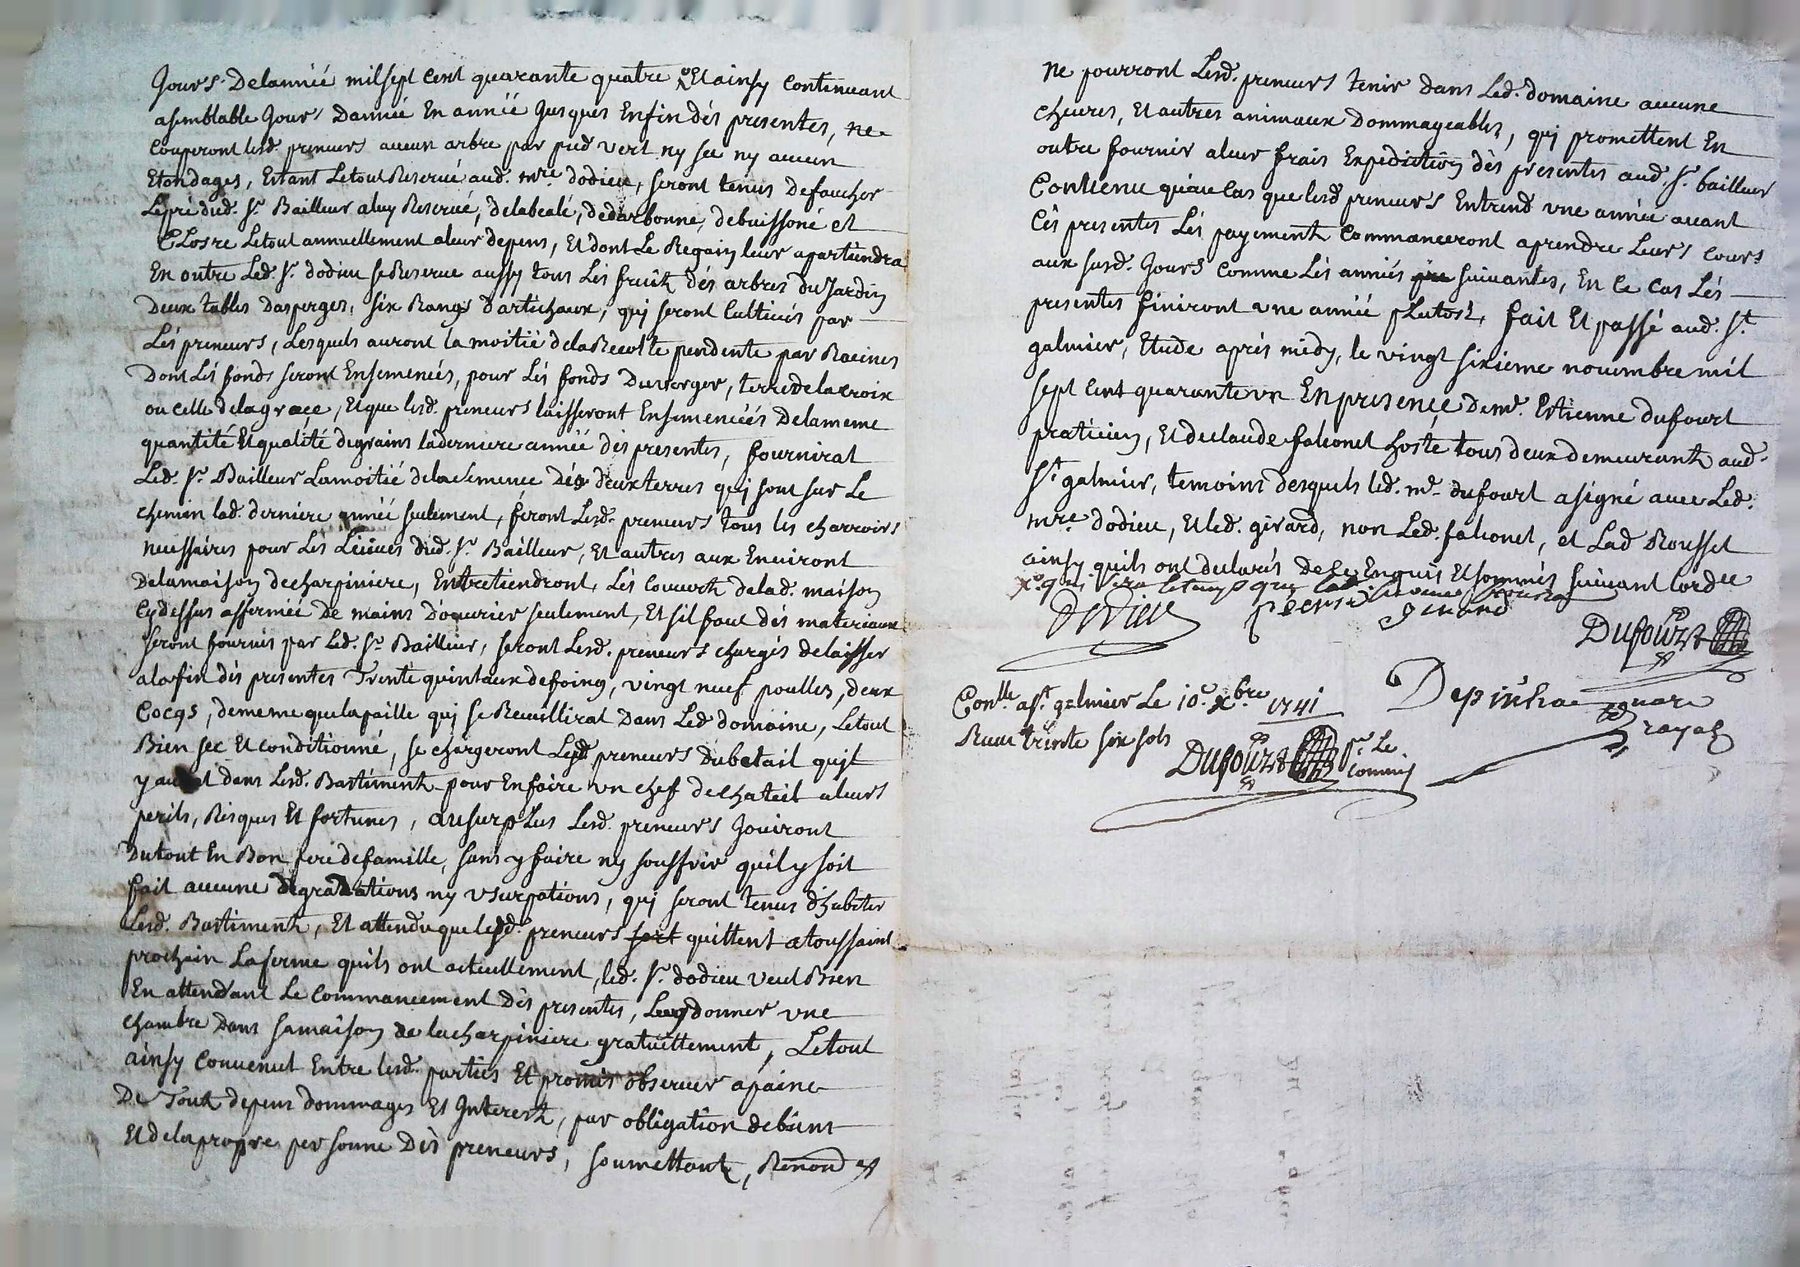 Jours Delannéé mil sept Cent quarante quatre Et ainsy Continuant
asemblable Jours Dannéé En annéé Jusques Enfin dés presentes, ne
Couperont lesd. preneurs aucun arbre par pied vert ny sec ny aucun
Etondages, Estant Le tout Reservé aud. mre. dodieu, seront tenus De faucher
Le pré dud. Sr. Bailleur a luy Reservé, de labealé, dedarbonne, debuissoné et
Closre Le tout annuellement a leur depens, Et dont Le Regain leur apartiendra
En outre Led. Sr. dodieu se Reserve aussy tous Lés fruits dés arbres du Jardin
Deux tables Dasperges, six Rangs d'artichaux, quj seront Cultivés par
Lés preneurs, Lesquels auront la moitié dela Recolte pendente par Racines
Dont Lés fonds seront Ensemencés, pour Lés fonds Du verger, terre dela croix
ou celle dela grace, Et que lesd. preneurs laisseront Ensemencéés De la meme
quantité Et qualité de grains la derniere annéé dés presentes, fournirat
Led. Sr. Bailleur La moitié de la semence Dés deux terres quj sont sur Le
chemin lad. derniere annéé seulement, féront Lesd. preneurs tous les charrois
necessaires pour Les Léives dud. Sr. Bailleur, Et autres aux Environt
de la maison de charpiniere, Entretiendront Lés Couverts de lad. maison
Cy dessus affermée De mains d'ouvrier seulement, Et sil faut dés materiaux
seront fournis par Led. Sr. Bailleur, seront Lesd. preneurs chargés de laisser
a la fin dés presentes Trente quintaux de foing, vingt neuf poulles, deux
Cocqs, de meme que la paille quj se Reuillirat Dans Led. domaine, Le tout
Bien sec Et conditionné, se chargeront Lesd. preneurs du betail qujl
y aurat dans Lesd. Bastiments pour En faire un chef de chateil a leurs
perils, Risques Et fortunes, au surplus Lesd. preneurs Jouiront
Du tout En Bon pere de famille, sans y faire ny souffrir quil y soit
fait aucune degradations ny usurpations, quj seront tenus d'habiter
Lesd. Bastiments, Et attendu que lesd. preneurs sort quittent a toussaint
prochain La ferme quils ont actuellement, led. Sr. dodieu veut Bien
En attendant Le Commancement Dés presentes, Leur donner une
chambre Dans sa maison de la charpiniere gratuittement, Le tout
ainsy Convenut Entre lesd. parties Et promis observer apaine
De Touts depens dommages Et Interests, par obligation de biens
Et de la propre personne Dés preneurs, soumettants, Renond
ne pourront Lesd. preneurs tenir dans Led. domaine aucune
chevres, Et autres animaux Dommageables, quj promettent En
outre fournir a leur frais Expédiction dés presentes aud. Sr. bailleur
Convenu qu'au cas que lesd preneurs Entrend une année avant
Cés presentes Lés payements Commanceront aprendre Leurs Cours
aux susd. Jours Comme Lés annéés suivantes, En ce cas Lés
presentes finiront une annéé plutost, fait Et passé aud. St.
galmier, Etude aprés midy, le vingt sixieme novembre mil
sept Cent quarante un En presence De mr. Estienne dufourt
praticien, Et de claude falconet hosté tous deux demeurants aud.
St. galmier, temoins desquels led. mr. dufourt a signé avec Led.
mre. dodieu, Et led. girard, non Led. falconet, et Lad Rousset
ainsy quils ont declarés De ce Enquis Et sommés suivant lordce
Dodieu girard
Dufourt
Depinhac notaire
royal
Conlle. a St. galmier Le 10e. xbre 1741
Recu trente six sols
Dufourt pr. Le
Commis